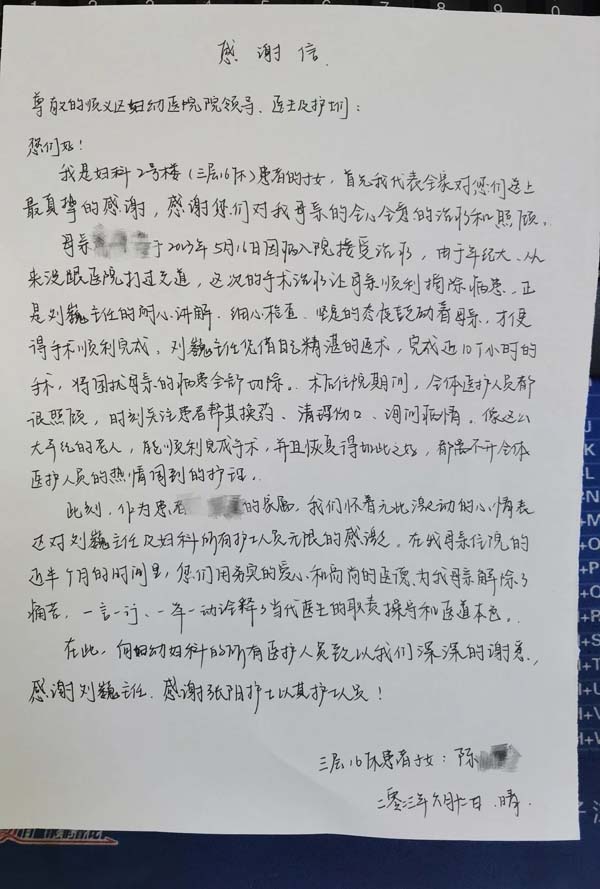 感谢信
尊敬的顺义区妇幼医院院领导、医生及护士们：
您们好！
我是妇科2号楼（三层16床）患者的子女，首先我代表全家对您们送上
最真挚的感谢，感谢您们对我母亲的全心全意的治疗和照顾。
母亲 于2023年5月16日因病入院接受治疗，由于年纪大、从
来没跟医院打过交道，这次的手术治疗让母亲顺利摘除病患，正
是刘巍主任的耐心讲解、细心检查、坚定的态度鼓励着母亲，才使
得手术顺利完成，刘巍主任凭借自己精湛的医术，完成近10个小时的
手术，将困扰母亲的病患全部切除。术后住院期间，全体医护人员都
很照顾，时刻关注患者帮其换药、清理伤口、询问病情。像这么
大年纪的老人，能顺利完成手术，并且恢复得如此之好，都离不开全体
医护人员的热情周到的护理。
此刻，作为患者 的家属，我们怀着无比激动的心情表
达对刘巍主任及妇科所有护士人员无限的感激。在我母亲住院的
近半个月的时间里，您们用务实的爱心和高尚的医德，为我母亲解除了
痛苦，一言一行、一举一动诠释了当代医生的职责操守和医道本色。
在此，向妇幼妇科的所有医护人员致以我们深深的谢意，
感谢刘巍主任、感谢张阳护士以其护士人员！
三层16床患者子女：陈
二零二三年六月十二日 晴.